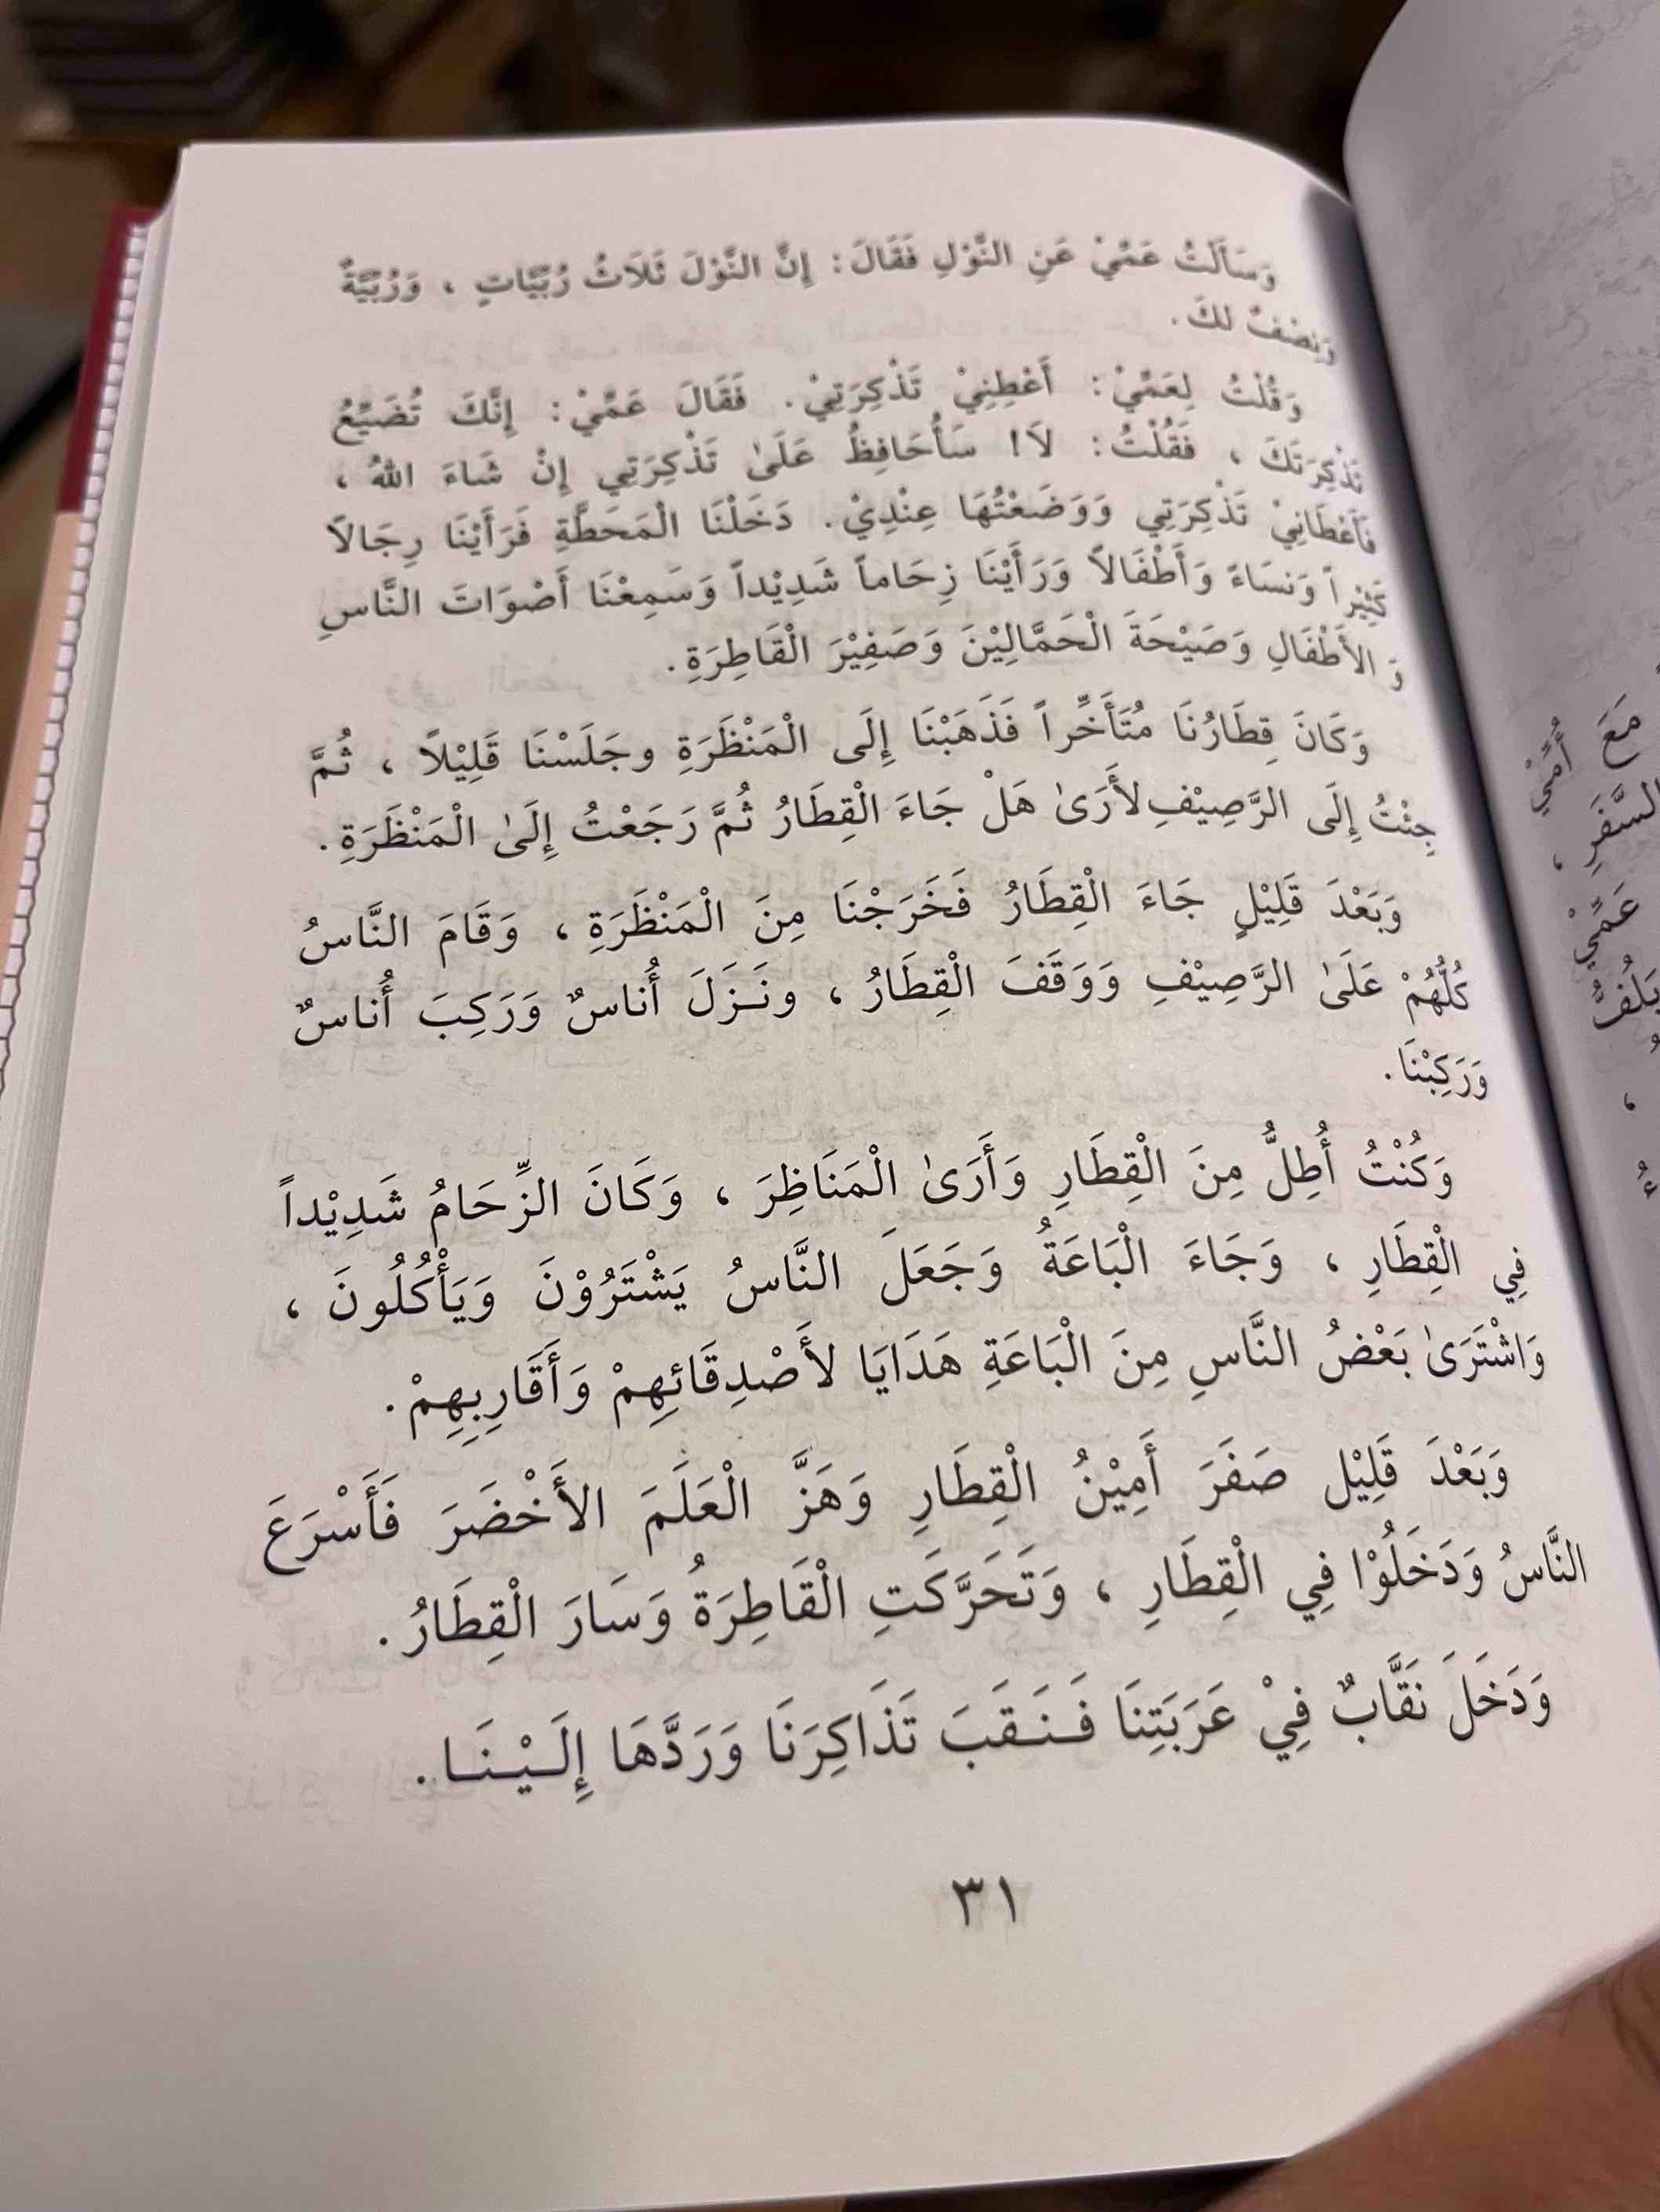 وَسَأَلْتُ عَمِّيْ عَنِ النَّوْلِ فَقَالَ: إِنَّ النَّوْلَ ثَلَاثُ رُبِّيَّاتٍ ، وَرُبِّيَّةٌ
وَنِصْفٌ لَكَ.
وَقُلْتُ لِعَمِّيْ: أَعْطِنِيْ تَذْكِرَتِيْ. فَقَالَ عَمِّيْ: إِنَّكَ تُضَيِّعُ
تَذْكِرَتَكَ ، فَقُلْتُ: لاَ! سَأُحَافِظُ عَلَىٰ تَذْكِرَتِي إِنْ شَاءَ اللهُ ،
فَأَعْطَانِيْ تَذْكِرَتِي وَوَضَعْتُهَا عِنْدِيْ. دَخَلْنَا الْمَحَطَّةِ فَرَأَيْنَا رِجَالاً
كَثِيْراً وَنسَاءً وَأَطْفَالاً وَرَأَيْنَا زِحَاماً شَدِيْداً وَسَمِعْنَا أَصْوَاتَ النَّاسِ
وَ الأَطْفَالِ وَصَيْحَةَ الْحَمَّالِيْنَ وَصَفِيْرَ الْقَاطِرَةِ.
وَكَانَ قِطَارُنَا مُتَأَخِّراً فَذَهَبْنَا إِلَى الْمَنْظَرَةِ وجَلَسْنَا قَلِيْلاً ، ثُمَّ
جِئْتُ إِلَى الرَّصِيْفِ لأَرَىٰ هَلْ جَاءَ الْقِطَارُ ثُمَّ رَجَعْتُ إِلَىٰ الْمَنْظَرَةِ.
وَبَعْدَ قَلِيْلٍ جَاءَ الْقِطَارُ فَخَرَجْنَا مِنَ الْمَنْظَرَةِ ، وَقَامَ النَّاسُ
كُلُّهُمْ عَلَىٰ الرَّصِيْفِ وَوَقَفَ الْقِطَارُ ، ونَـزَلَ أُناسٌ وَرَكِبَ أُناسٌ
وَرَكِبْنَا.
وَكُنْتُ أُطِلُّ مِنَ الْقِطَارِ وَأَرَىٰ الْمَنَاظِرَ ، وَكَانَ الزِّحَامُ شَدِيْداً
فِي الْقِطَارِ ، وَجَاءَ الْبَاعَةُ وَجَعَلَ النَّاسُ يَشْتَرُوْنَ وَيَأْكُلُونَ ،
وَاشْتَرَىٰ بَعْضُ النَّاسِ مِنَ الْبَاعَةِ هَدَايَا لأَصْدِقَائِهِمْ وَأَقَارِبِهِمْ.
وَبَعْدَ قَلِيْل صَفَرَ أَمِيْنُ الْقِطَارِ وَهَزَّ الْعَلَمَ الأَخْضَرَ فَأَسْرَعَ
النَّاسُ وَدَخَلُوْا فِي الْقِطَارِ ، وَتَحَرَّكَتِ الْقَاطِرَةُ وَسَارَ الْقِطَارُ.
وَدَخَلَ نَقَّابٌ فِيْ عَرَبَتِنَا فَـنَـقَبَ تَذَاكِرَنَا وَرَدَّهَا إِلَـيْـنَـا.
٣١
مَعَ أُمِّيْ
السَّفَرِ ،
عَمِّيْ